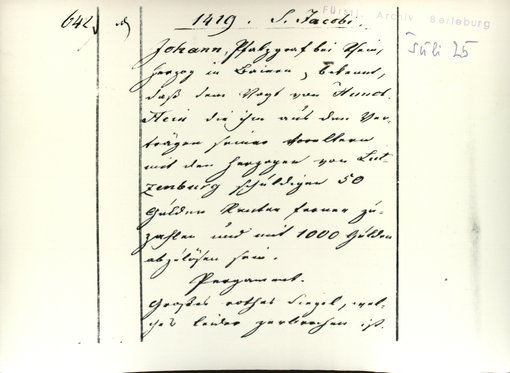 Fürstl. Archiv Berleburg
642, d)
1419. S. Jacobi.
Juli 25
Johann, Pfalzgraf bei Rhein,
Herzog in Baiern, bekennt,
daß dem Vogt von Hunol-
stein die ihm aus den Ver-
trägen seiner Voreltern
mit den Herzogen von Lut-
zenburg schuldigen 50
Gulden Renten ferner zu
zahlen und mit 1000 Gulden
abzulösen sein.
Pergament.
Großes rothes Siegel, wel-
ches leider zerbrochen ist.